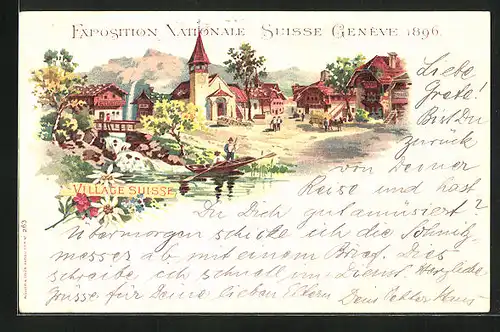 EXPOSITION NATIONALE SUISSE GENÈVE 1896.
VILLAGE SUISSE
Liebe
Grete!
Bist Du
zurück
von Deiner
Reise und hast
Du Dich gut amüsiert?
Übermorgen schicke ich die Schnitz-
messer ab mit einem Brief. Dies
schreibe ich schnell vom Dienst. Herzliche
Grüsse für Deine lieben Eltern Dein Vetter Hans
263